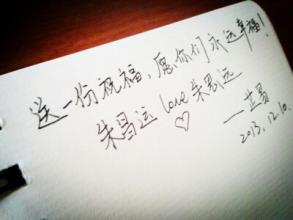 送一份祝福，愿你们永远幸福！
朱昌运 love 朱恩远
——艺易
2013.12.10.